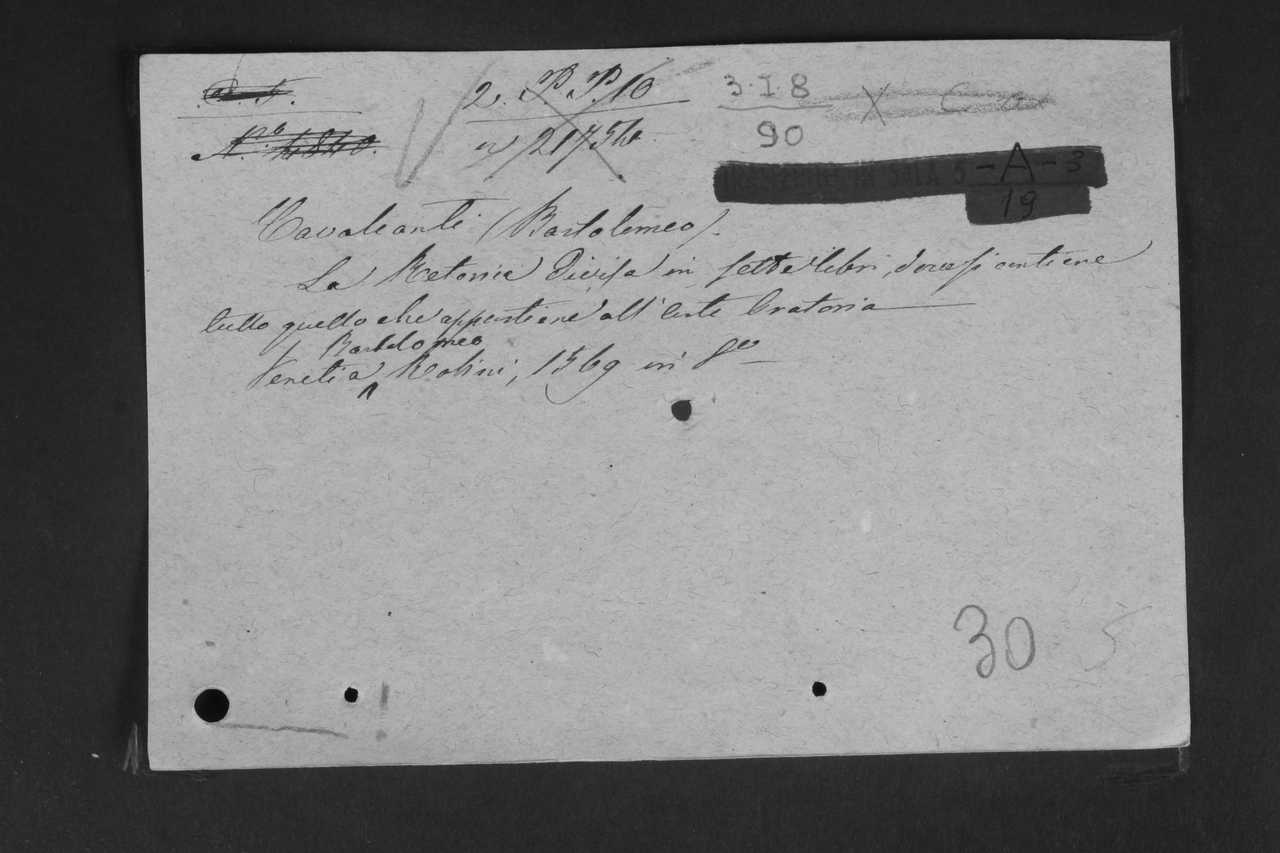 2. P. P. 10
3·I·8
N.º 4840.
90
TRASFERITO IN SALA 5 - A - 3
19
Cavalcanti (Bartolomeo).
La Retorica Divisa in sette libri, dove si contiene
tutto quello che appartiene all' arte Oratoria
Bartolomeo
Venetia Robini, 1569 in 8º
30 5